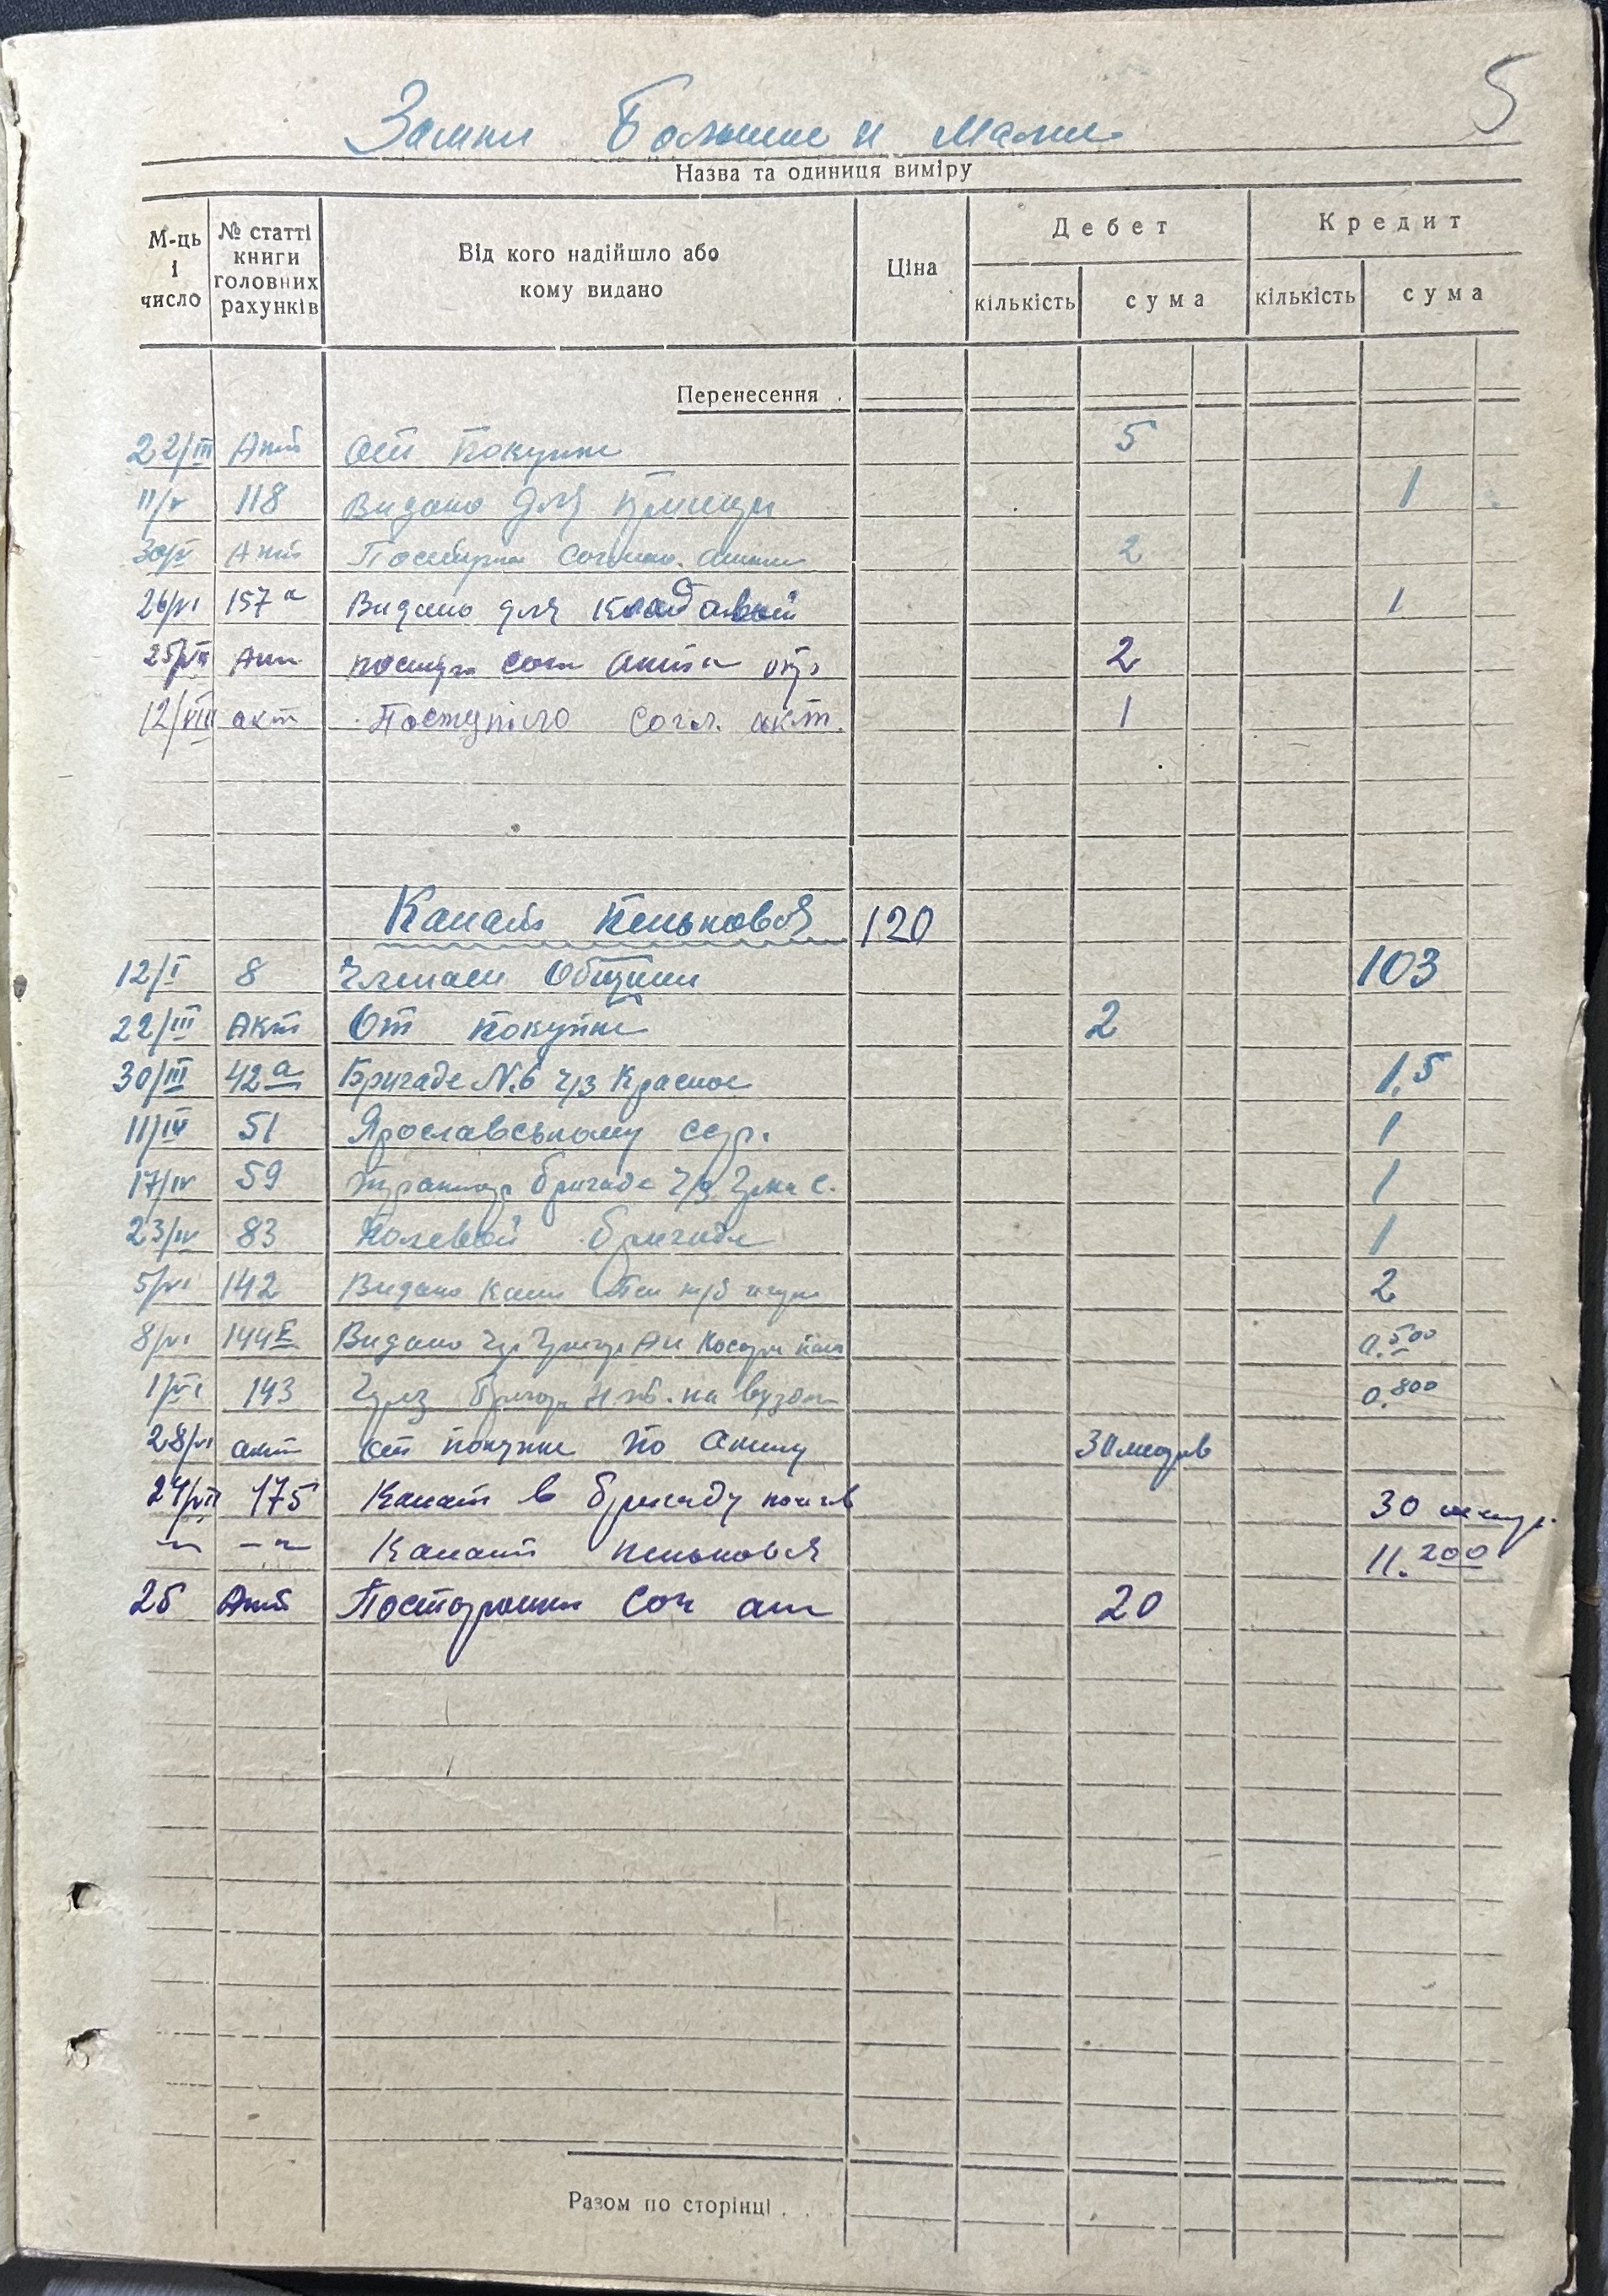 5
Замки Большие и малые
Назва та одиниця виміру
М-ць і число
№ статті книги головних рахунків
Від кого надійшло або кому видано
Ціна
Дебет
Кредит
кількість
сума
кількість
сума
Перенесення .
22/III Акт От Покупки 5
11/V 118 Видано для 1
30/V Акт 2
26/VI 157а Видано для Кладовой 1
25/VII Акт 2
12/VIII акт Поступило согл. акт. 1
Канат Пеньковой 120
12/I 8 Членам Общини 103
22/III Акт От покупки 2
30/III 42а Бригаде N.6 ч/з Красное 1,5
11/IV 51 Ярославському 1
17/IV 59 бригаде ч/з 1
23/IV 83 Полевой бригаде 1
5/VI 142 Видано 2
8/VI 144 Видано 0.500
1/VI 143 Через на 0.800
28/VI акт от покупки по акту 30 метров
24/VII 175 Канат в бригаду 30 метр.
–"– –"– Канат пеньковой 11.200
25 Акт Посторонки Сог акт 20
Разом по сторінці . .